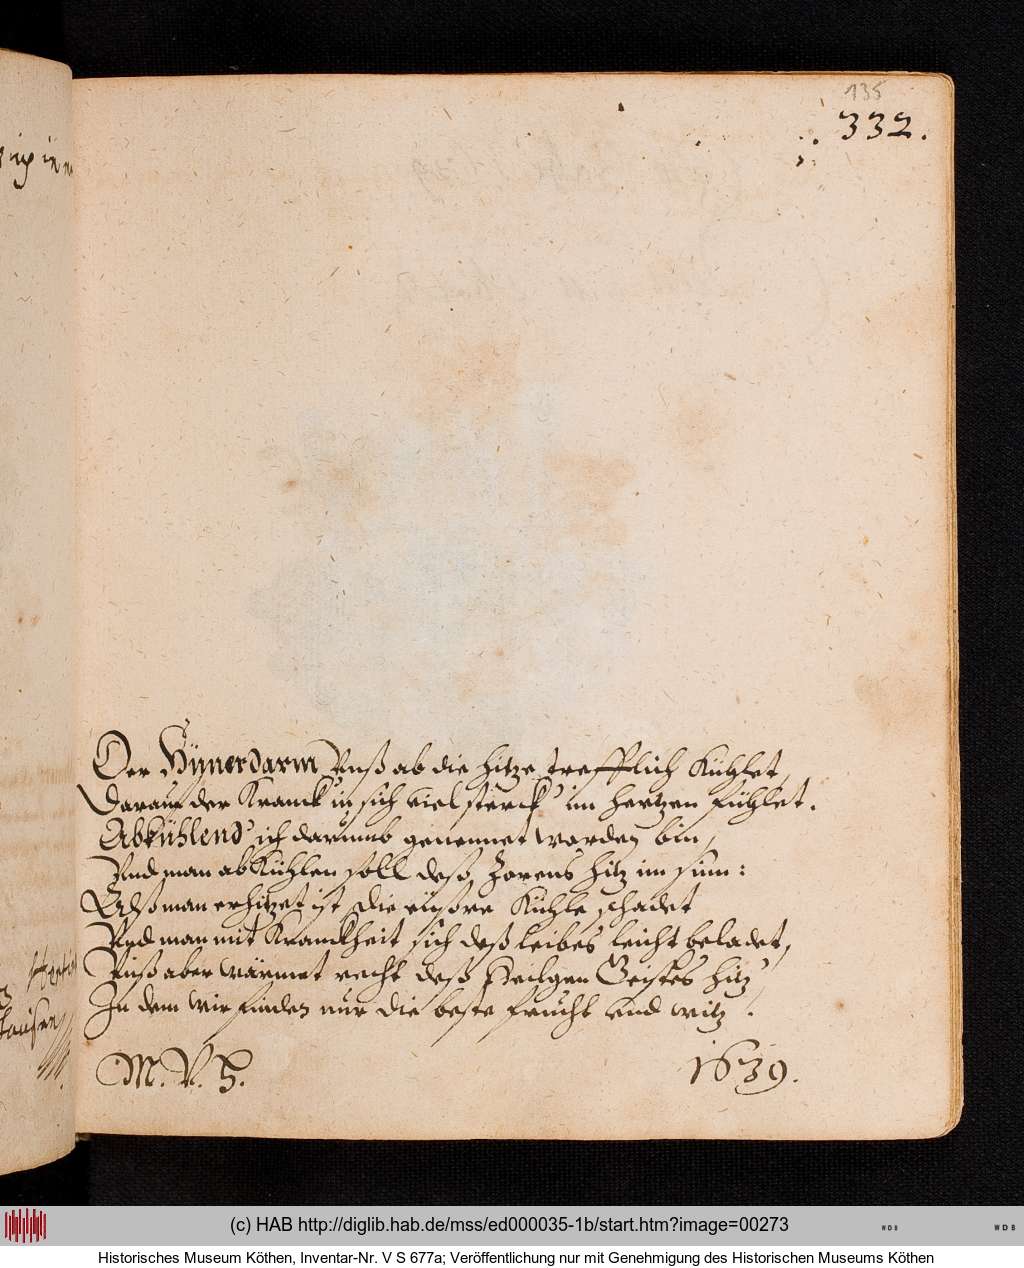 135
332.
Der Hünerdarm Vnß ab die hitze trefflich Kühlet,
Darauf der Kranck in sich viel sterck' im hertzen fühlet.
Abkühlend' ich darumb genennet worden bin,
Vnd man abkühlen soll deß Zorens hitz im sinn:
Alß man erhitzet ist, die eüßre Kühle schadet
Vnd man mit Kranckheit sich deß leibes leicht beladet,
Vnß aber wärmet recht deß Heilgen Geistes hitz',
In dem wir finden nur die beste frucht vnd witz.
M. V. H.
1639.
(c) HAB http://diglib.hab.de/mss/ed000035-1b/start.htm?image=00273
WDB
WDB
Historisches Museum Köthen, Inventar-Nr. V S 677a; Veröffentlichung nur mit Genehmigung des Historischen Museums Köthen